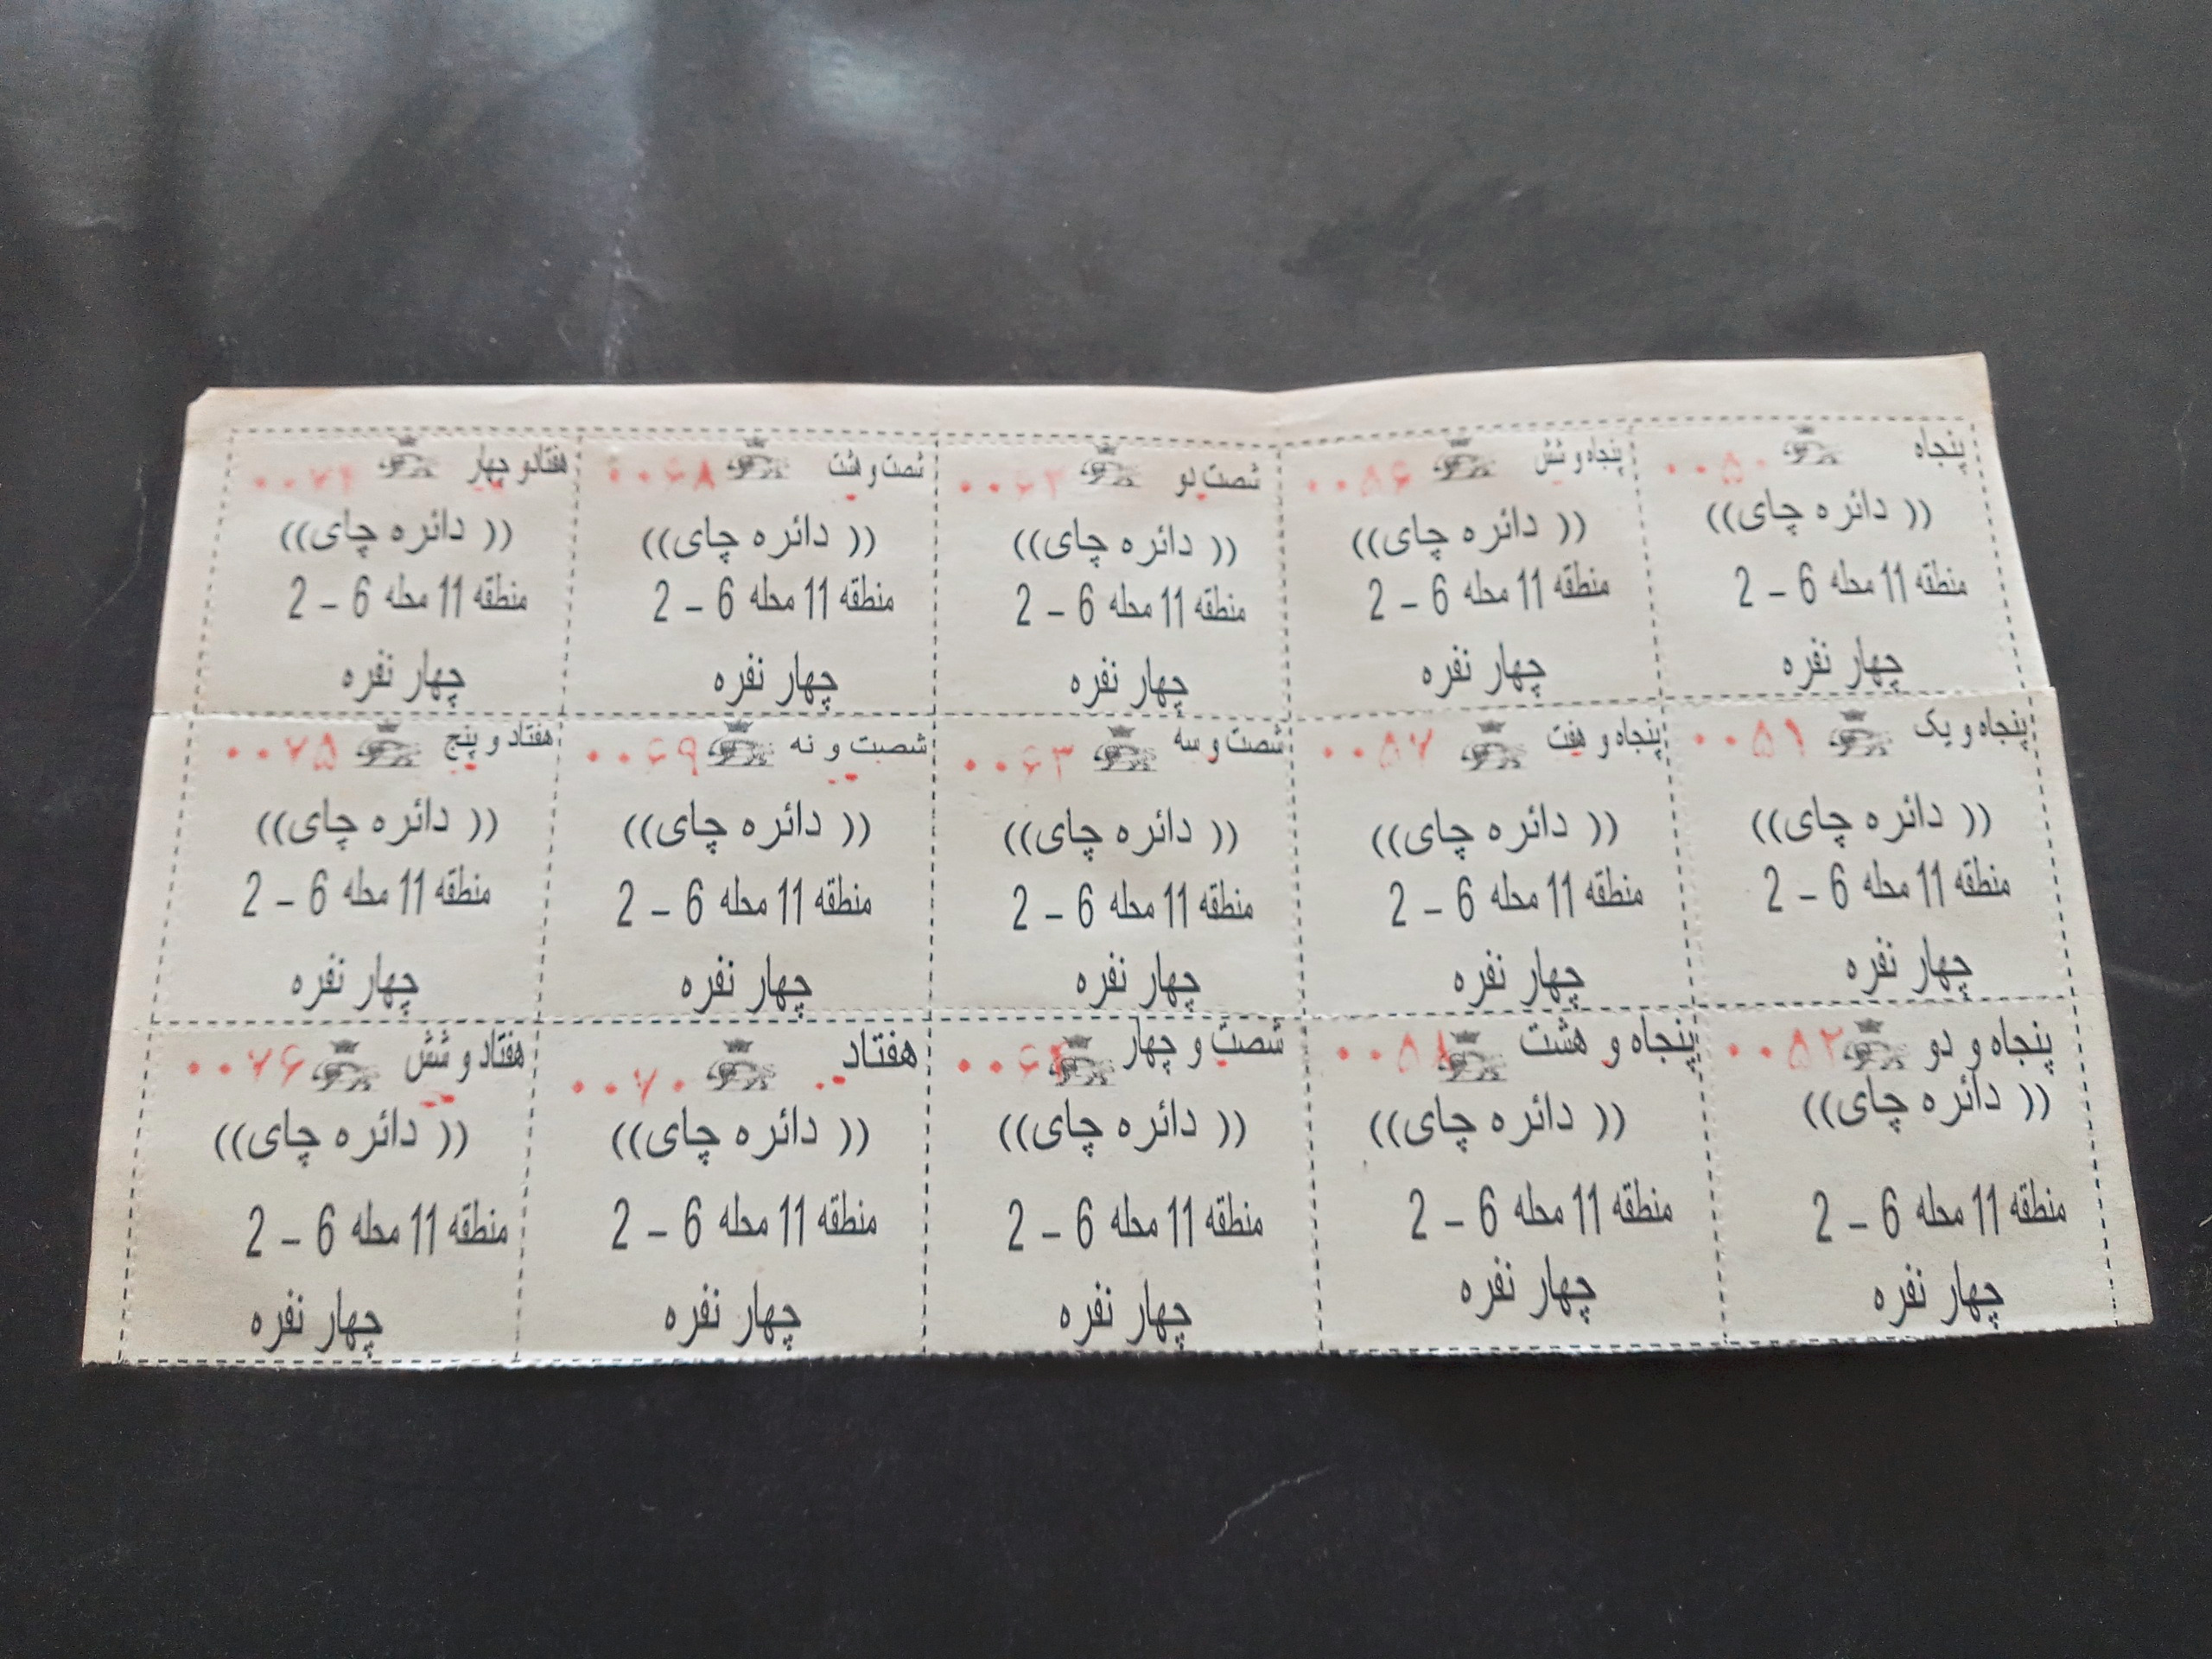 پنجاه ۰۰۵۰
(( دائره چای))
منطقه 11 محله 6 - 2
چهار نفره
پنجاه و شش ۰۰۵۶
(( دائره چای))
منطقه 11 محله 6 - 2
چهار نفره
شصت دو ۰۰۶۲
(( دائره چای))
منطقه 11 محله 6 - 2
چهار نفره
شصت و هشت ۰۰۶۸
(( دائره چای))
منطقه 11 محله 6 - 2
چهار نفره
هفتاد و چهار ۰۰۷۴
(( دائره چای))
منطقه 11 محله 6 - 2
چهار نفره
پنجاه و یک ۰۰۵۱
(( دائره چای))
منطقه 11 محله 6 - 2
چهار نفره
پنجاه و هفت ۰۰۵۷
(( دائره چای))
منطقه 11 محله 6 - 2
چهار نفره
شصت و سه ۰۰۶۳
(( دائره چای))
منطقه 11 محله 6 - 2
چهار نفره
شصت و نه ۰۰۶۹
(( دائره چای))
منطقه 11 محله 6 - 2
چهار نفره
هفتاد و پنج ۰۰۷۵
(( دائره چای))
منطقه 11 محله 6 - 2
چهار نفره
پنجاه و دو ۰۰۵۲
(( دائره چای))
منطقه 11 محله 6 - 2
چهار نفره
پنجاه و هشت ۰۰۵۸
(( دائره چای))
منطقه 11 محله 6 - 2
چهار نفره
شصت و چهار ۰۰۶۴
(( دائره چای))
منطقه 11 محله 6 - 2
چهار نفره
هفتاد ۰۰۷۰
(( دائره چای))
منطقه 11 محله 6 - 2
چهار نفره
هفتاد و شش ۰۰۷۶
(( دائره چای))
منطقه 11 محله 6 - 2
چهار نفره